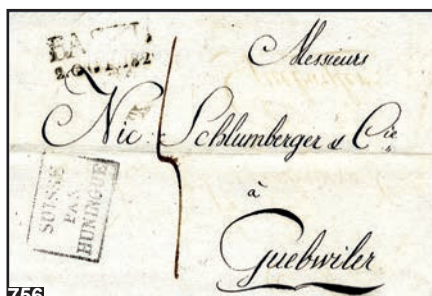 BASEL
Messieurs
Nic: Schlumberger & Cie
à
Guebwiler
SUISSE
PAR
HUNINGUE
756